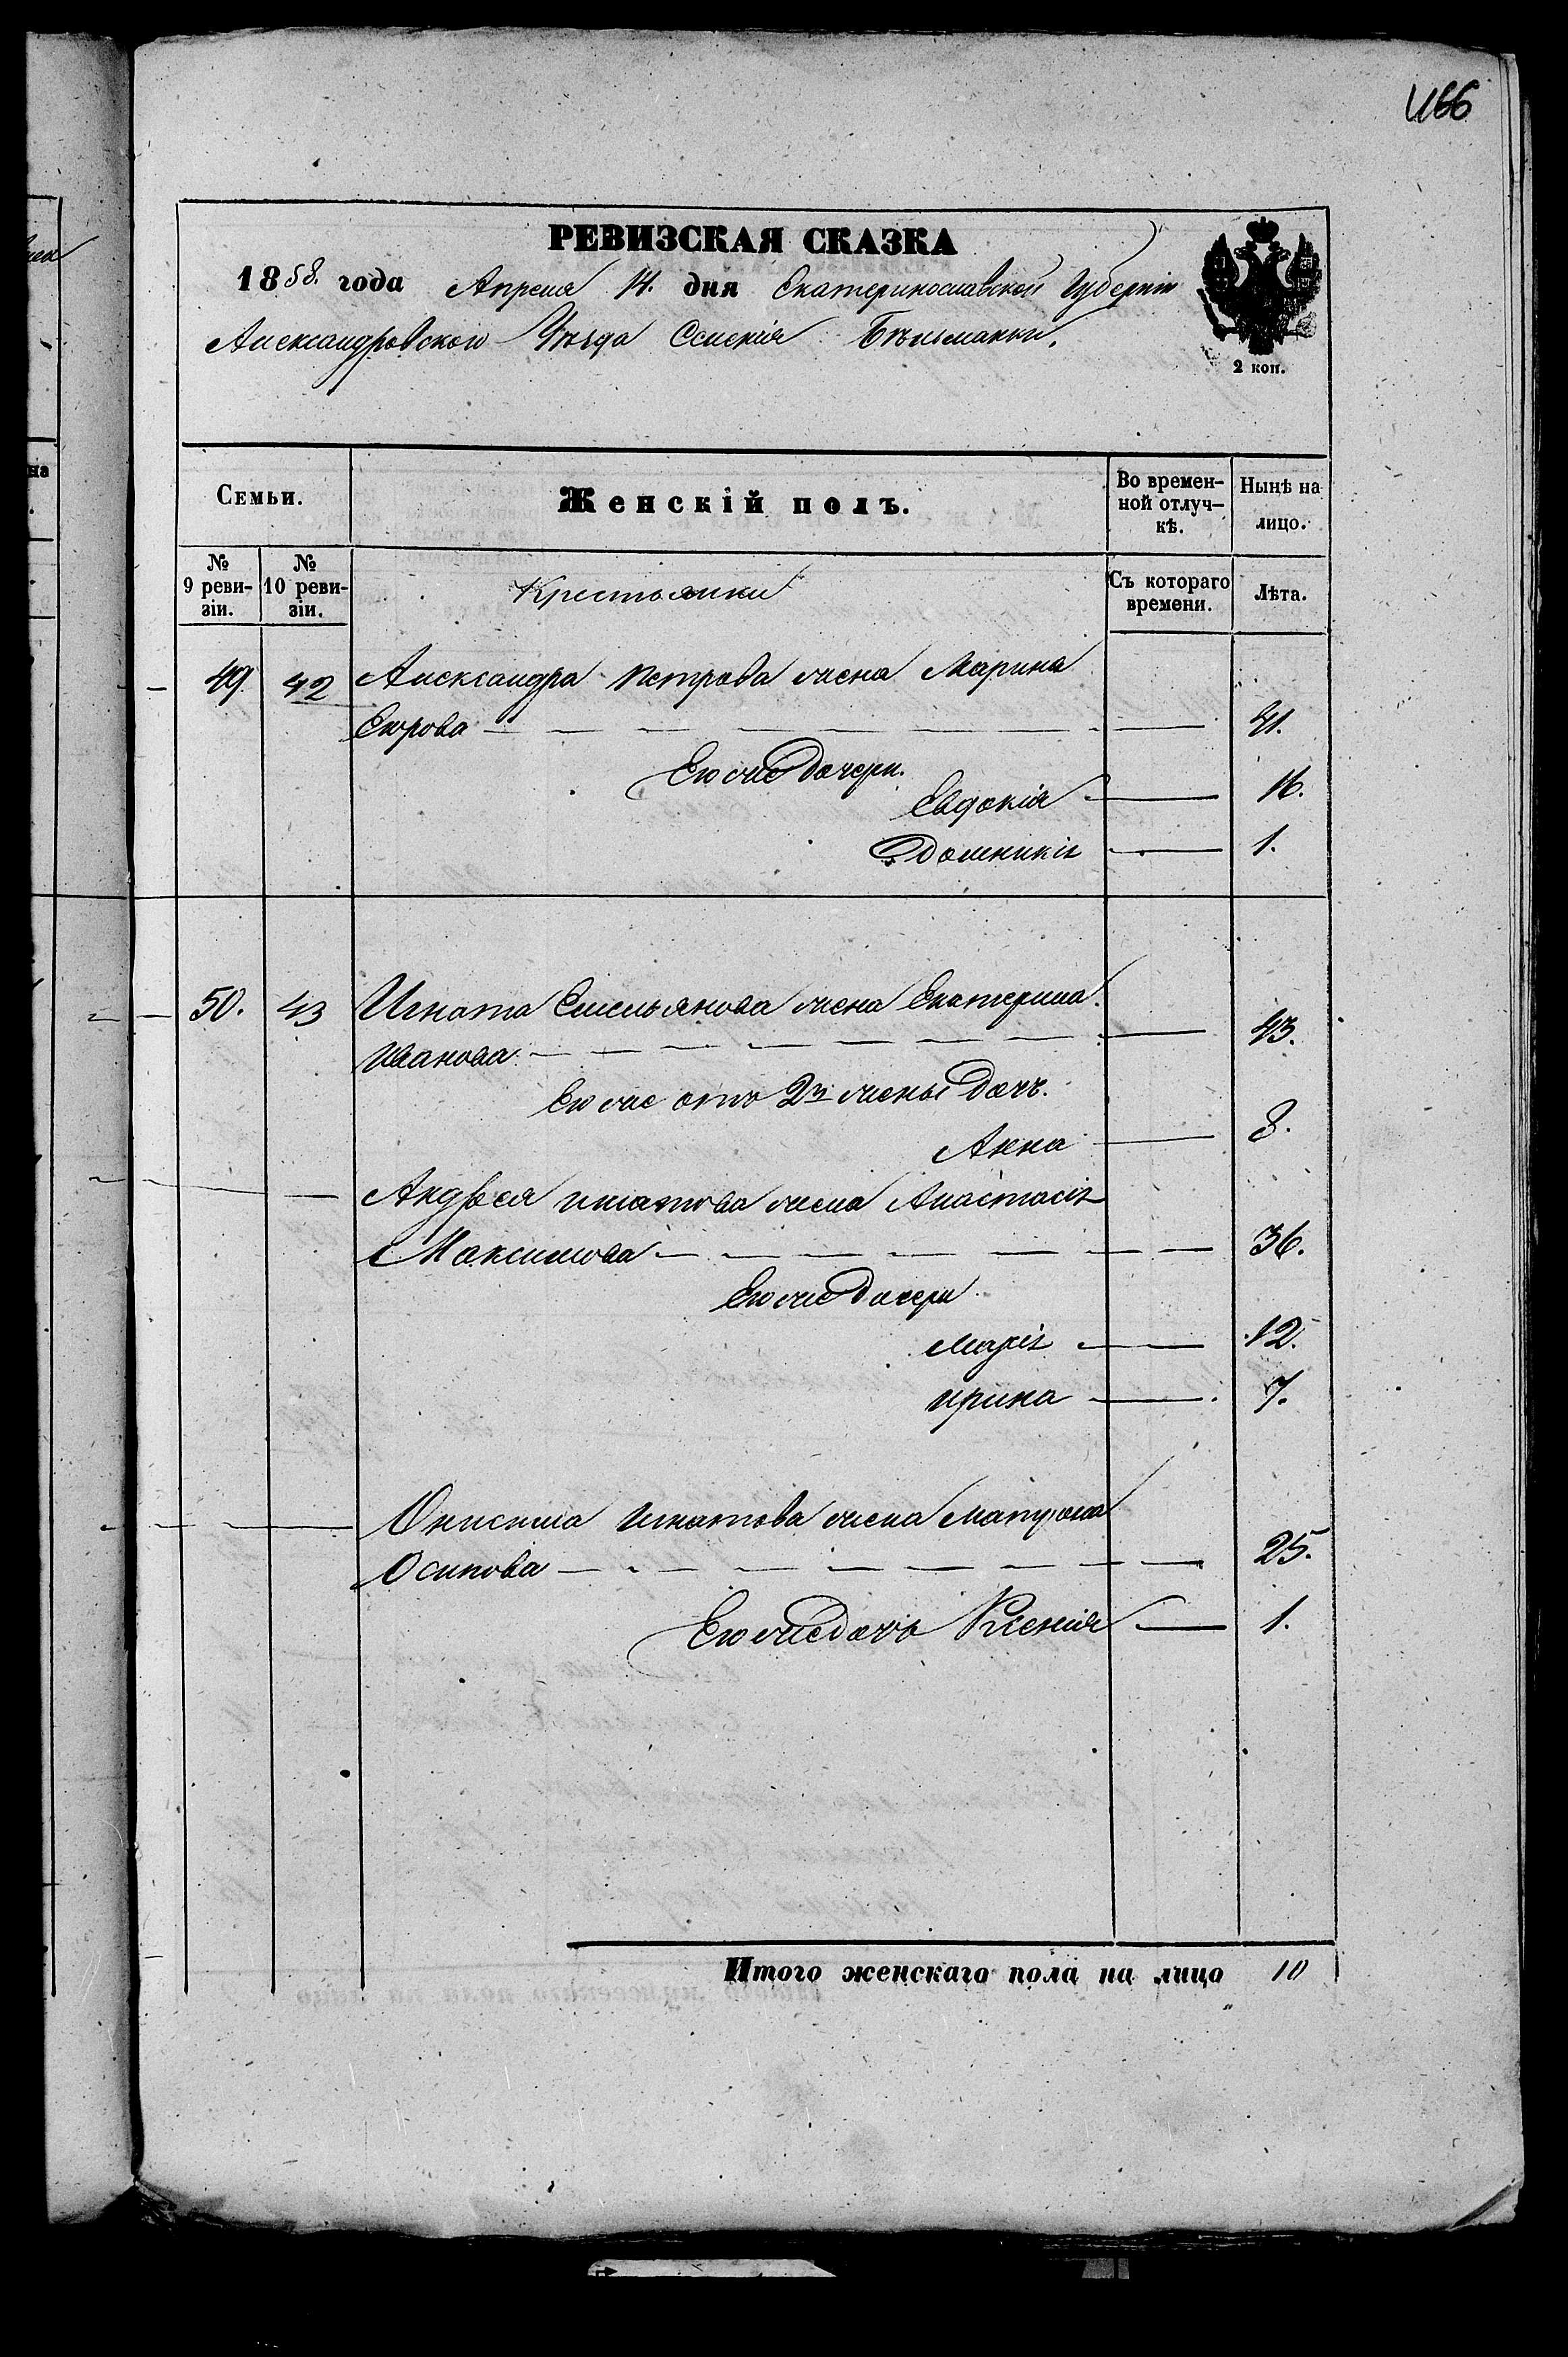 466
РЕВИЗСКАЯ СКАЗКА
1858. года Апреля 14. дня Екатеринославской Губерніи
Александровскои Уѣзда Селенія Бѣльманки.
2 коп.
Семьи.
Женскій полъ.
Во времен-
ной отлуч-
кѣ.
Нынѣ на
лицо.
№
9 реви-
зіи.
№
10 реви-
зіи.
Крестьянки
Съ котораго
времени.
Лѣта.
49 42 Александра Петрова жена Марина
Егорова 41.
Его же дочери.
Евдокія 16.
Домникія 1.
50. 43 Игната Емельянова жена Екатерина
Иванова 43.
Его же отъ 2й жены дочь.
Анна 8.
Андрея игнатова жена Анастасія
Максимова 36.
Его же дочери
марія 12.
ирина 7.
Онисима игнатова жена матрона
Осипова 25.
Его же дочь Ксенія 1.
Итого женскаго пола на лицо 10